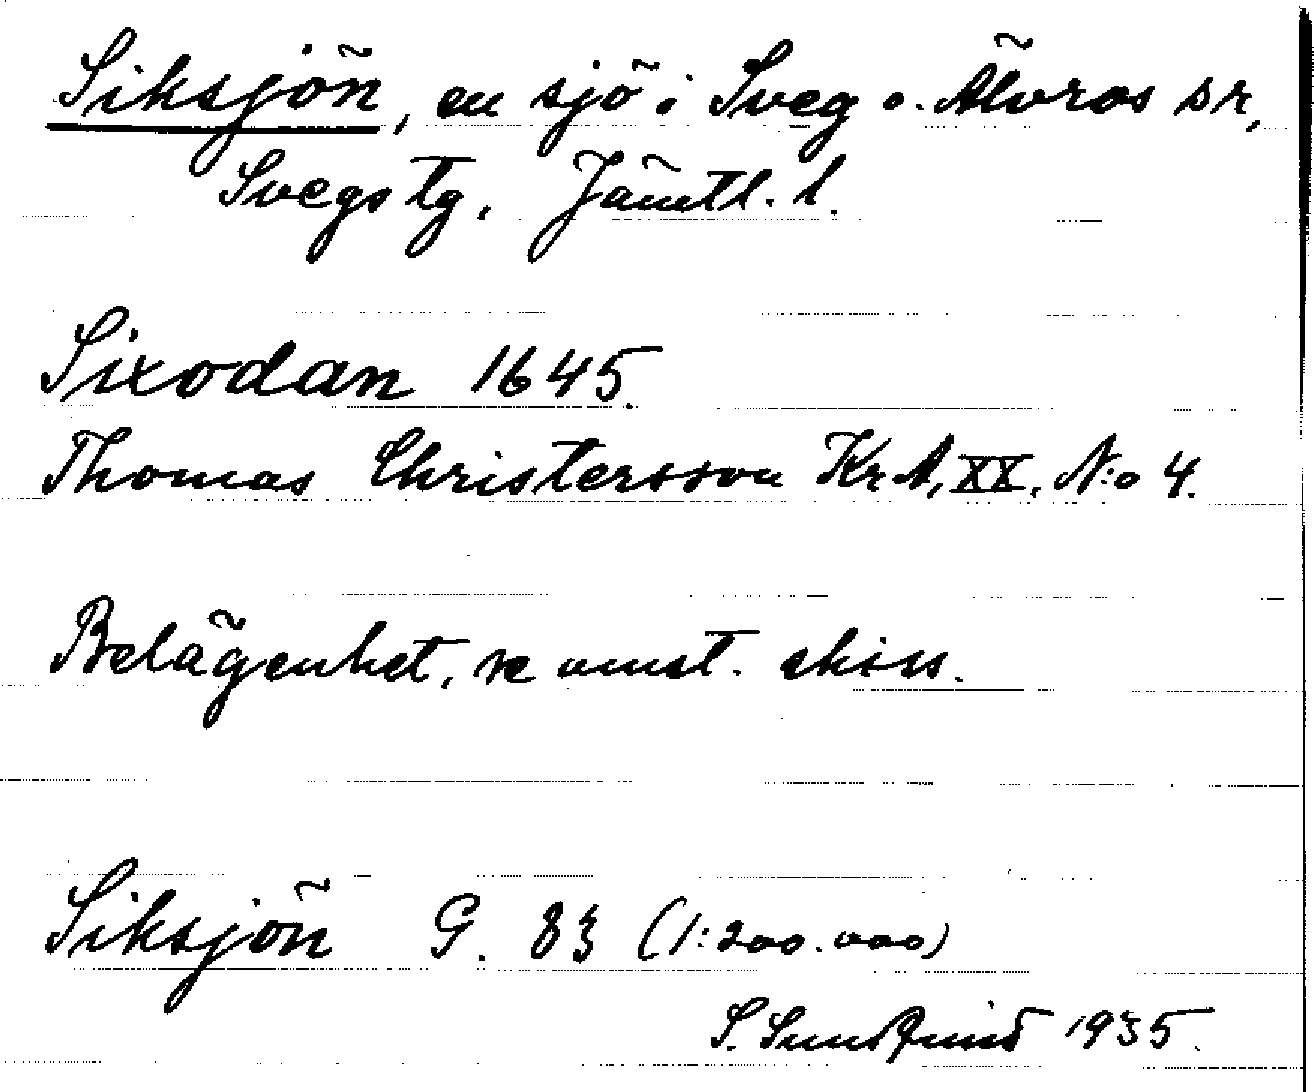 Siksjön, en sjö i Sveg o. Älvros snr,
Svegs tg, Jämtl. l.
Sixodan 1645.
Thomas Christersson KrA, XX, N:o 4.
Belägenhet, se omst. skiss.
Siksjön G. 83 (1:200.000)
S. Sundquist 1935.